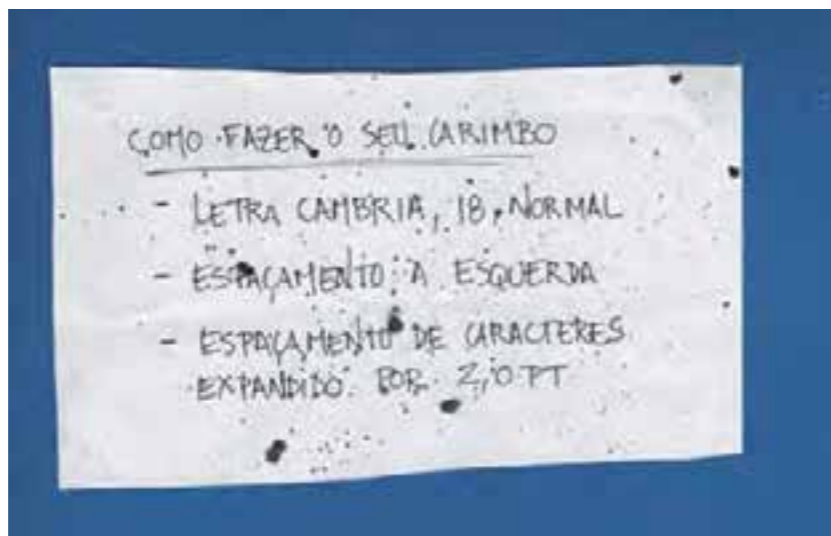 COMO FAZER O SEU CARIMBO
- LETRA CAMBRIA, 18, NORMAL
- ESPAÇAMENTO À ESQUERDA
- ESPAÇAMENTO DE CARACTERES
EXPANDIDO POR 2,0 PT